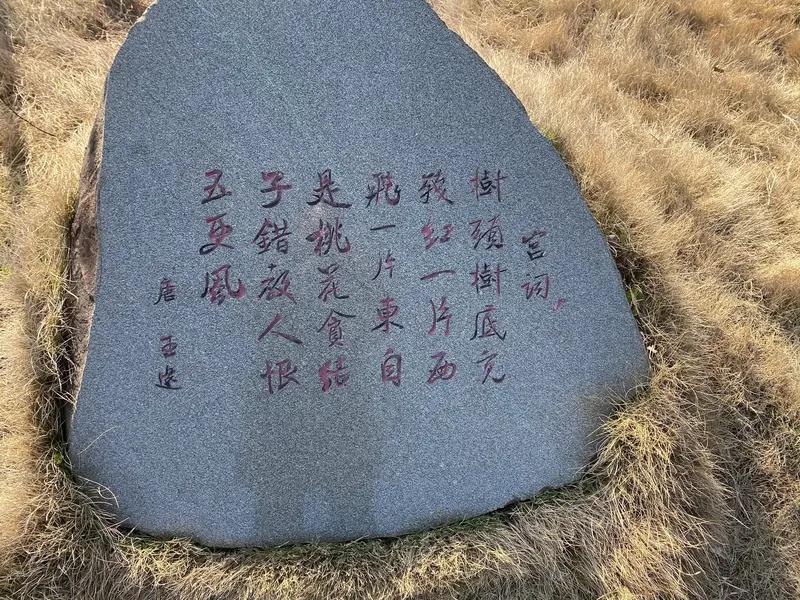 宫词
樹頭樹底觅
残红一片西
飛一片東自
是桃花貪結
子錯教人恨
五更風
唐 王建